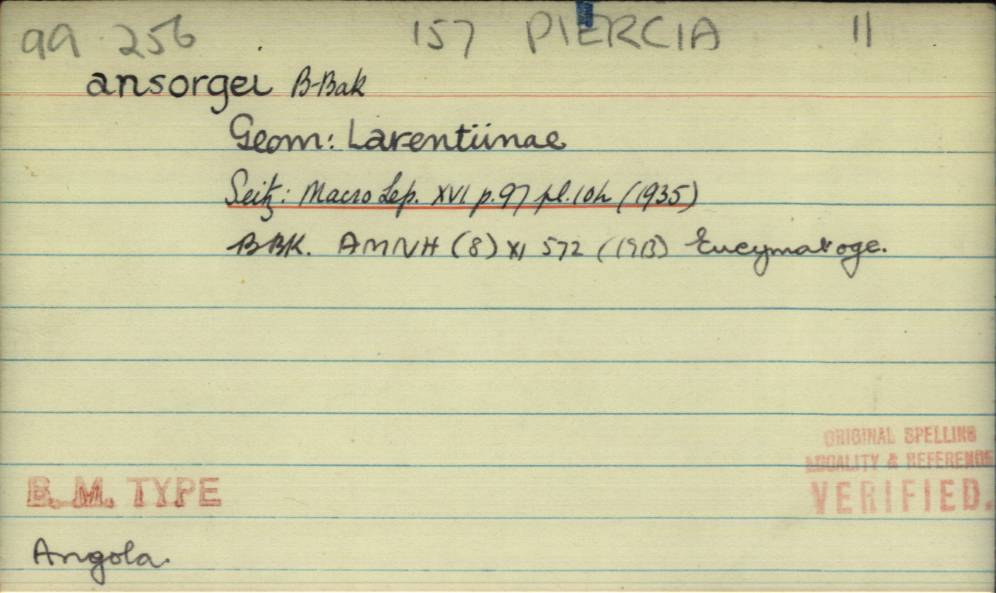 99 256 157 PIERCIA 11
ansorgei B-Bak
Geom: Larentiinae
Seitz: Macro Lep. XVI p.97 pl.10h (1935)
BBK. AMNH (8) XI 572 (1913) Eucymatoge.
ORIGINAL SPELLING
LOCALITY & REFERENCE
VERIFIED.
B. M. TYPE
Angola.